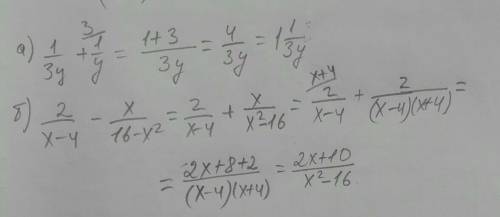 а) 1/3y + 3\1/y = (1+3)/3y = 4/3y = 1 1/3y
б) 2/(x-4) - x/(16-x²) = 2/(x-4) + x/(x²-16) = x+4\2/(x-4) + 2/((x-4)(x+4)) =
= (2x+8+2)/((x-4)(x+4)) = (2x+10)/(x²-16)